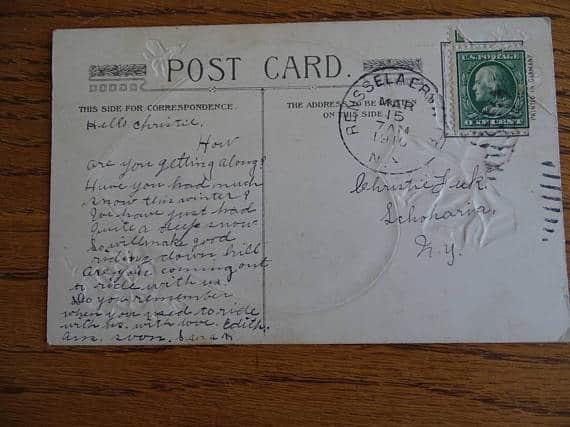 POST CARD.
THIS SIDE FOR CORRESPONDENCE.
THE ADDRESS TO BE
ON THIS SIDE
RENSSELAER
MAR
15
7 AM
N.Y.
U.S. POSTAGE
ONE CENT
PRINTED IN GERMANY
Hello Christie.
How
are you getting along?
Have you had much
snow this winter?
We have just had
quite a deep snow
so will make good
riding down hill
Are you coming out
to ride with us.
Do you remember
when you used to ride
with us. with love. Edith.
ans. soon.
Christie
Schoharie,
N.Y.